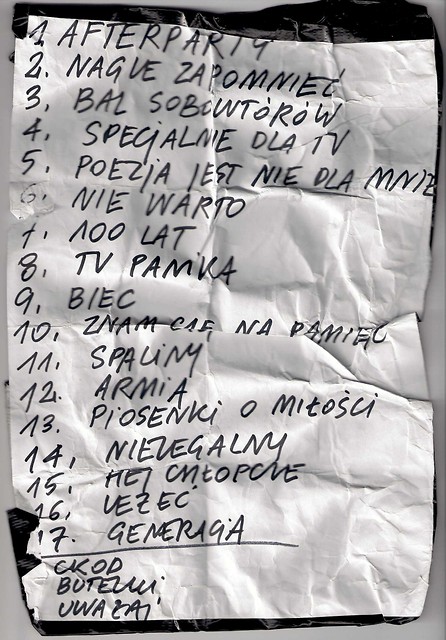 1. AFTERPARTY
2. NAGLE ZAPOMNIEĆ
3. BAL SOBOWTÓRÓW
4. SPECJALNIE DLA TV
5. POEZJA JEST NIE DLA MNIE
6. NIE WARTO
7. 100 LAT
8. TV PANIKA
9. BIEC
10. ZNAM CIĘ NA PAMIĘĆ
11. SPALINY
12. ARMIA
13. PIOSENKI O MIŁOŚCI
14. NIELEGALNY
15. HEJ CHŁOPCZE
16. LEŻEĆ
17. GENERACJA
CKOD
BUTELKI
UWAŻAJ